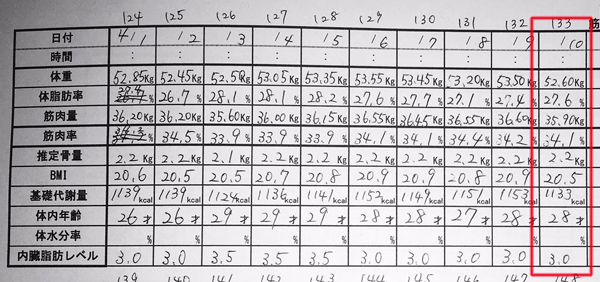 124 125 126 127 128 129 130 131 132 133
日付 4/1 /2 /3 /4 /5 /6 /7 /8 /9 /10
時間 : : : : : : : : : :
体重 52.85Kg 52.45Kg 52.5Kg 53.05Kg 53.35Kg 53.55Kg 53.45Kg 53.20Kg 53.50Kg 52.60Kg
体脂肪率 26.7% 28.1% 28.1% 28.2% 27.6% 27.7% 27.1% 27.4% 27.6%
筋肉量 36.20Kg 36.20Kg 35.60Kg 36.00Kg 36.15Kg 36.55Kg 36.45Kg 36.55Kg 36.60Kg 35.90Kg
筋肉率 34.5% 33.9% 33.9% 33.9% 34.1% 34.1% 34.4% 34.2% 34.1%
推定骨量 2.2Kg 2.2Kg 2.1Kg 2.2Kg 2.2Kg 2.2Kg 2.2Kg 2.2Kg 2.2Kg 2.2Kg
BMI 20.6 20.5 20.5 20.7 20.8 20.9 20.9 20.8 20.9 20.5
基礎代謝量 1139kcal 1139kcal 1124kcal 1136kcal 1141kcal 1152kcal 1149kcal 1151kcal 1153kcal 1133kcal
体内年齢 26才 26才 29才 29才 29才 28才 28才 27才 28才 28才
体水分率 % % % % % % % % % %
内臓脂肪レベル 3.0 3.0 3.5 3.5 3.5 3.0 3.0 3.0 3.0 3.0
139 140 141 142 143 144 145 146 147 148